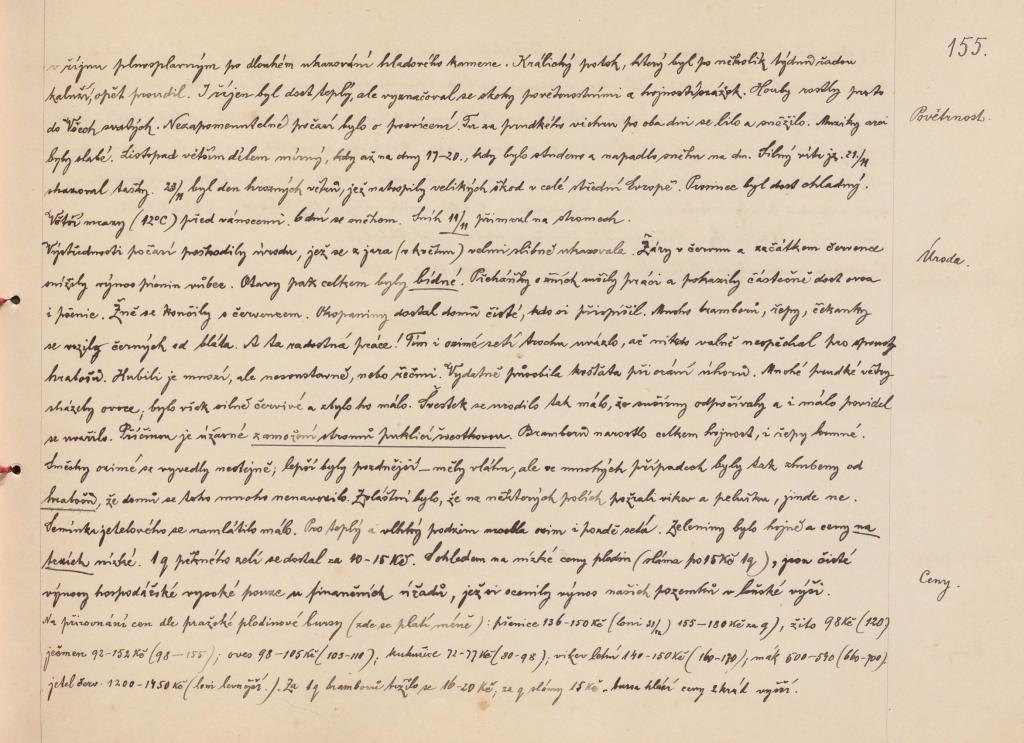 155.
v říjnu plnosplavným po dlouhém ukazování hladového kamene. Králický potok, který byl po několik týdnů řadou
kaluží, opět proudil. I říjen byl dost teplý, ale vyznačoval se skoky povětrnostními a hojností srážek. Houby rostly
Povětrnost.
do Všech svatých. Nezapomenutelné počasí bylo o posvícení. Tu za prudkého vichru po oba dni se lilo a sněžilo. Muziky
byly slabé. Listopad větším dílem mírný, kdy až na dny 17-20., kdy bylo studeno a napadlo sněhu na dm. Silný vítr
shazoval tašky. 23/11 byl den hrozných větrů, jež natropily velikých škod v celé střední Evropě. Prosinec byl dost chladný.
Větší mrazy (12°C) před vánocemi. 6 dní se sněhem. Sníh 19/11 přimrzl na stromech.
Výstřednosti počasí poškodily úrodu, jež se z jara (v květnu) velmi slibně ukazovala. Žáry v červnu a začátkem července
Úroda.
snížily výnos pícnin vůbec. Otavy pak celkem byly bídné. Pícháňky o žních rušily práci a pokazily částečně dost ovsa
i pšenice. Žně se končily s červencem. Okopaniny dostal domů čisté, kdo si přispíšil. Mnoho bramborů, řepy, čekanky
se vozilo černých od bláta. A ta radostná práce! Tím i ozimé setí trochu uvázlo, ač nikdo valně nespěchal pro spousty
hrabošů. Hubili je mnozí, ale nesoustavně, nebo řečmi. Vydatně působila košťata při orání úhorů. Mnohé prudké větry
sházely ovoce; bylo však silně červivé a zbylo ho málo. Švestek se urodilo tak málo, že sušírny odpočívaly a i málo povidel
se uvařilo. Příčinou je úžasné zamoření stromů puklicí švestkovou. Bramborů narostlo celkem hojnost, i řepy krmné.
Směsky ozimé se vyvedly nestejně; lepší byly pozdnější - měly vláhu, ale ve mnohých případech byly tak zhubeny od
hrabošů, že domů se toho mnoho nenavozilo. Zvláštní bylo, že na některých polích požrali vikev a pelušku, jinde ne.
Semínka jetelového se namlátilo málo. Pro teplý a vlhký podzim vzešla ozim i pozdě setá. Zeleniny bylo hojně a ceny na
trzích nízké. 1 q pěkného zelí se dostal za 10-15 Kč. S ohledem na nízké ceny plodin (sláma po 15 Kč 1q), jsou čisté
Ceny.
výnosy hospodářské vysoké pouze u finančních úřadů, jež si ocenily výnos našich pozemků v loňské výši.
Na přirovnání cen dle pražské plodinové bursy (zde se platí méně): pšenice 136-150 Kč (loni 31/12 155-180 Kč za q), žito 98 Kč (120)
ječmen 92-152 Kč (98-155); oves 98-105 Kč (103-110); kukuřice 72-77 Kč (80-98); vikev letní 140-150 Kč (160-170); mák 500-540 (660-700).
jetel červ. 1200-1450 Kč (loni levnější.). Za 1q bramborů tržilo se 16-20 Kč, za q slámy 15 Kč - bursa hlásí ceny 2krát vyšší.